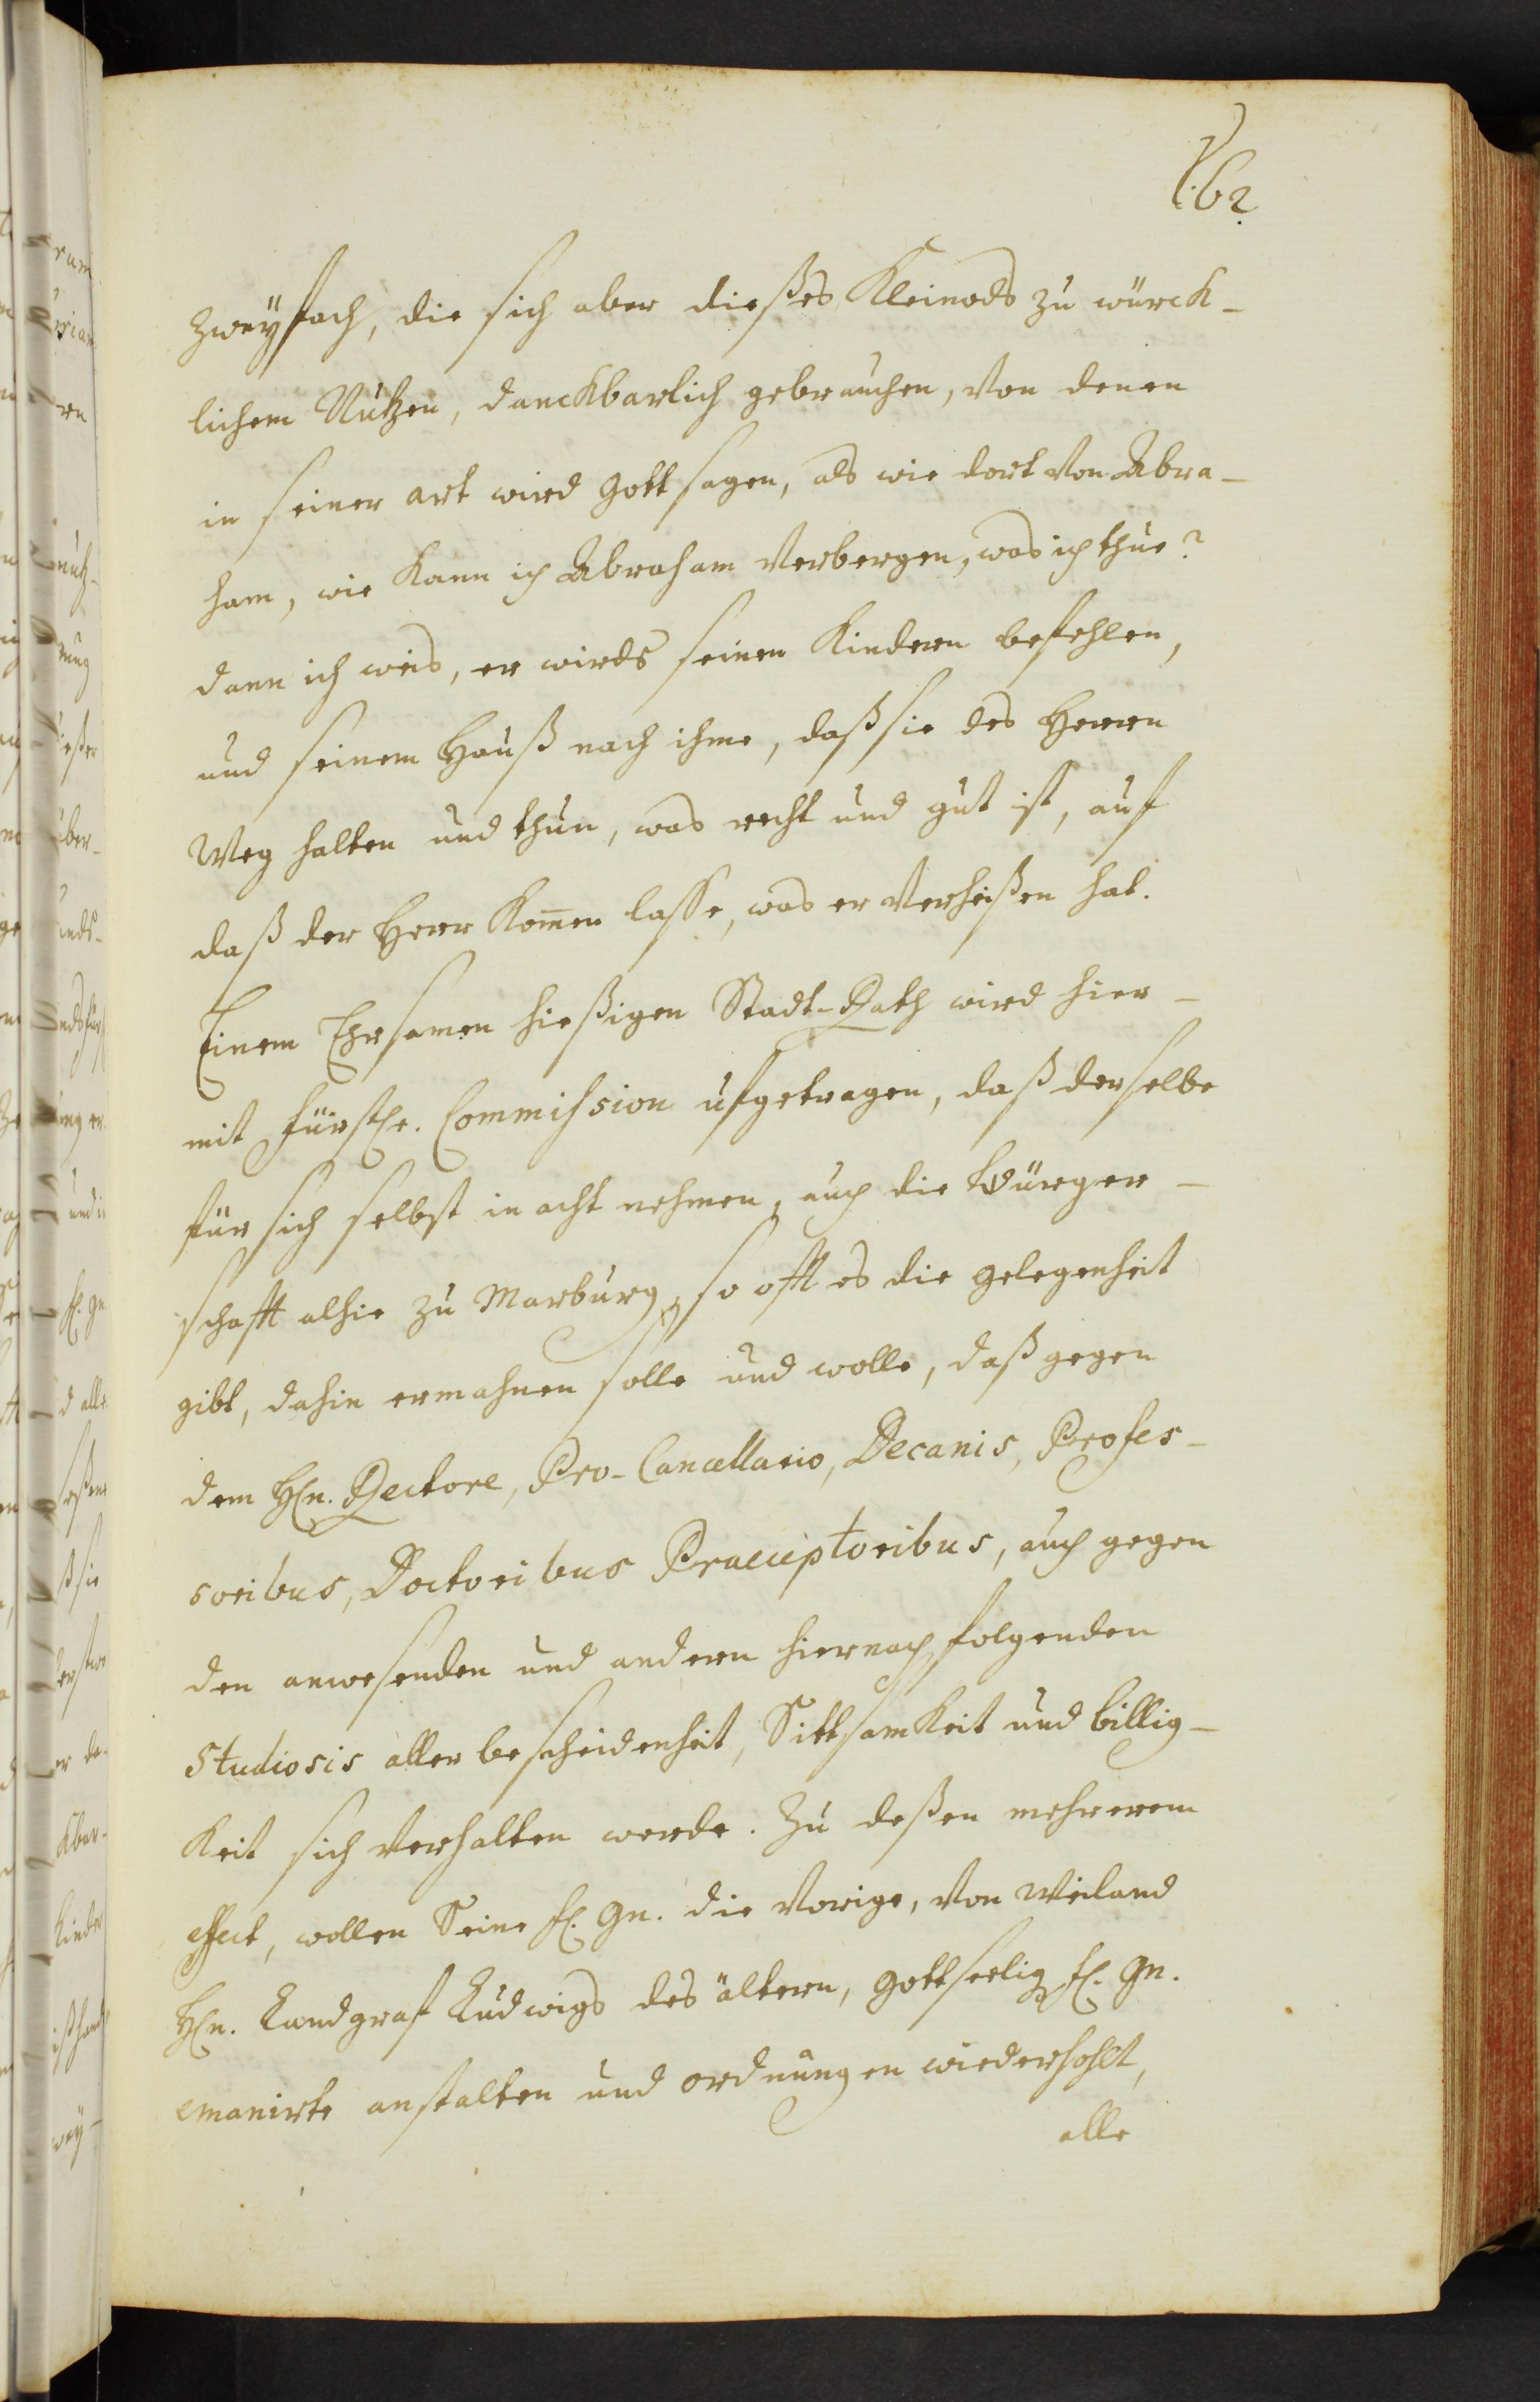 62
zweyfach, die sich aber dießes Kleinods zu würck-
lichem Nutzen, danckbarlich gebrauchen, von denen
in seiner art wird gott sagen, als wie dort von Abra-
ham, wie kann ich Abraham verbergen, was ich thue?
dann ich weis, er wirds seinen Kindern befehlen,
und seinem Hauß nach ihme, daß sie des Herren
Weg halten und thun, was recht und gut ist, auf
daß der Herr kom̄en lasse, was er verheißen hat.
Einem Ehrsamen hießigen Stadt-Rath wird hier-
mit fürstl. Commission ufgetragen, daß derselbe
für sich selbst in acht nehmen, auch die Bürger-
schafft alhie zu Marburg, so offt es die gelegenheit
gibt, dahin ermahnen solle und wolle, daß gegen
dem Hn. Rectore, Pro-Cancellario, Decanis, Profes-
soribus, Doctoribus Praeceptoribus, auch gegen
den anwesenden und andern hiernach folgenden
Studiosis aller bescheidenheit, Sittsamkeit und billig-
keit sich verhalten werde. Zu deßen mehrerem
effect, wollen Seine fl. gn. die vorige, von weiland
Hn. Landgraf Ludwigs des ältern, gottseelig fl. gn.
emanirte anstalten und ordnungen wiederhohlt,
alle